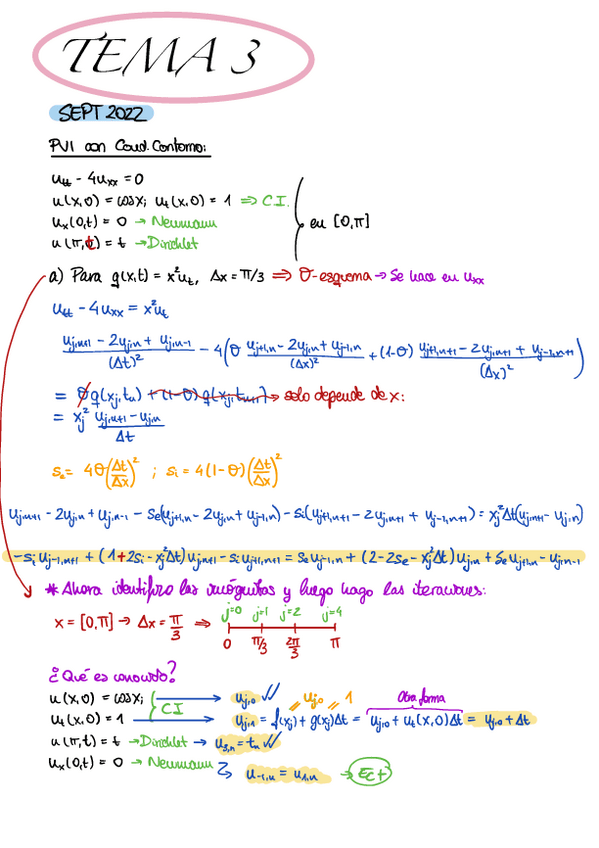 TEMA 3
SEPT 2022
PVI con Cond. Contorno:
u_tt - 4u_xx = 0
u(x,0) = cosx; u_t(x,0) = 1 ⇒ C.I.
u_x(0,t) = 0 → Neumann
u(π,t) = t → Dirichlet
en [0,π]
a) Para g(x,t) = x²u_t, Δx = π/3 ⇒ θ-esquema → Se hace en u_xx
u_tt - 4u_xx = x²u_t
(u_j,n+1 - 2u_j,n + u_j,n-1)/(Δt)² - 4(θ (u_j+1,n - 2u_j,n + u_j-1,n)/(Δx)² + (1-θ) (u_j+1,n+1 - 2u_j,n+1 + u_j-1,n+1)/(Δx)²)
= θ g(x_j,t_n) + (1-θ) g(x_j,t_n+1) → solo depende de x:
= x_j² (u_j,n+1 - u_j,n)/Δt
s_e = 4θ(Δt/Δx)² ; s_i = 4(1-θ)(Δt/Δx)²
u_j,n+1 - 2u_j,n + u_j,n-1 - s_e(u_j+1,n - 2u_j,n + u_j-1,n) - s_i(u_j+1,n+1 - 2u_j,n+1 + u_j-1,n+1) = x_j²Δt(u_j,n+1 - u_j,n)
-s_i u_j-1,n+1 + (1+2s_i - x_j²Δt)u_j,n+1 - s_i u_j+1,n+1 = s_e u_j-1,n + (2-2s_e - x_j²Δt)u_j,n + s_e u_j+1,n - u_j,n-1
* Ahora identifico las incógnitas y luego hago las iteraciones:
j=0 j=1 j=2 j=4
x = [0,π] → Δx = π/3 ⇒
0 π/3 2π/3 π
¿Qué es conocido?
u(x,0) = cosx; → u_j,0 ✓✓
u_j,0 1 Otra forma
u_t(x,0) = 1 CI → u_j,n = f(x_j) + g(x_j)Δt = u_j,0 + u_t(x,0)Δt = u_j,0 + Δt
u(π,t) = t → Dirichlet → u_3,n = t_n ✓✓
u_x(0,t) = 0 → Neumann
u_-1,n = u_1,n →